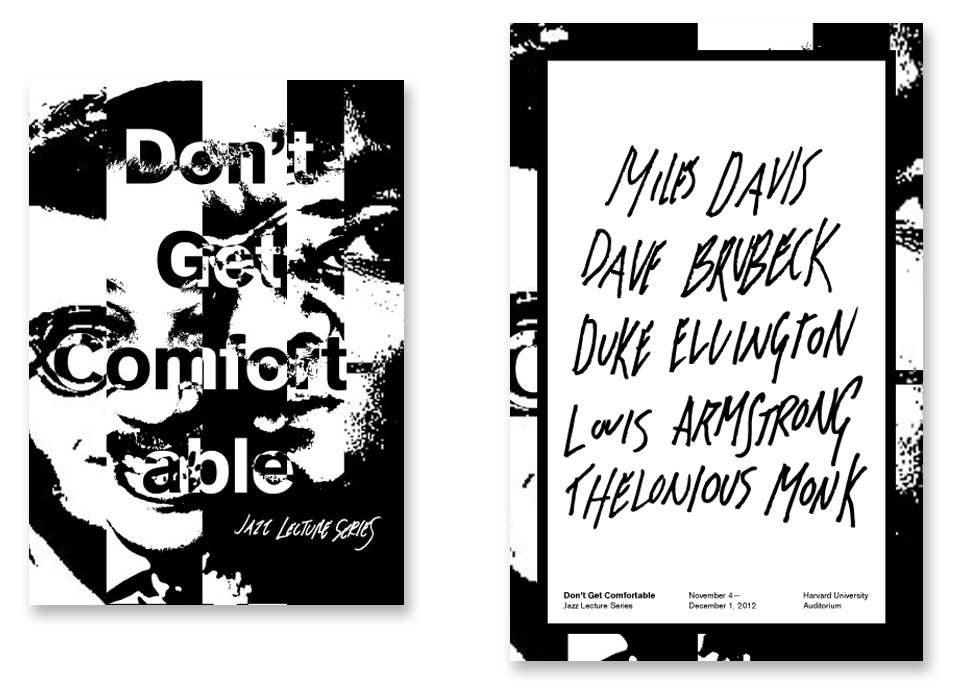 Don't
Get
Comfort
able
JAZZ LECTURE SERIES
MILES DAVIS
DAVE BRUBECK
DUKE ELLINGTON
LOUIS ARMSTRONG
THELONIOUS MONK
Don't Get Comfortable
Jazz Lecture Series
November 4—
December 1, 2012
Harvard University
Auditorium